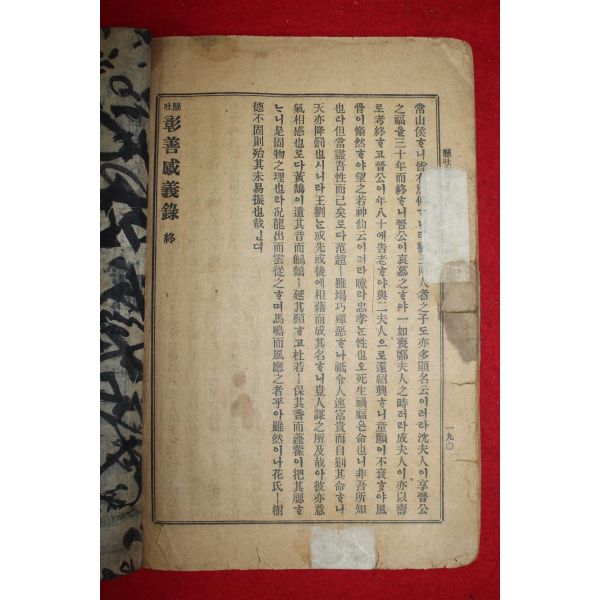 常山侯하니皆有別傳하니라劉王兩人者之子도亦多顯名云이러라沈夫人이享晉公
之福을三十年而終하니晉公이哀慕之하야一如喪鄭夫人之時러라成夫人이亦以壽
로考終하고晉公이年八十에告老하야與二夫人으로還紹興하니童顏이不衰하야風
骨이脩然하야望之若神仙云이러라噫라忠孝는性也오死生禍福은命也니非吾所知
也라但當盡吾性而已矣로다范趙ㅣ雖場巧殫惡하나祗令人速富貴而自剿其命하니
天亦降罰也시니라王劉는或先或後에相藉而成其名하니豈人謀之所及哉아彼亦意
氣相感也로다黃鵠이遺其音而鷦鷯ㅣ延其頸하고杜若ㅣ保其香而蓬藿이把其腮하
나니是固物之理也라况龍出而雲從之하며馬鳴而風應之者乎아雖然이나花氏ㅣ樹
德不固則殆其未易振也哉인뎌
懸吐 彰善感義錄 終
懸吐
一九〇